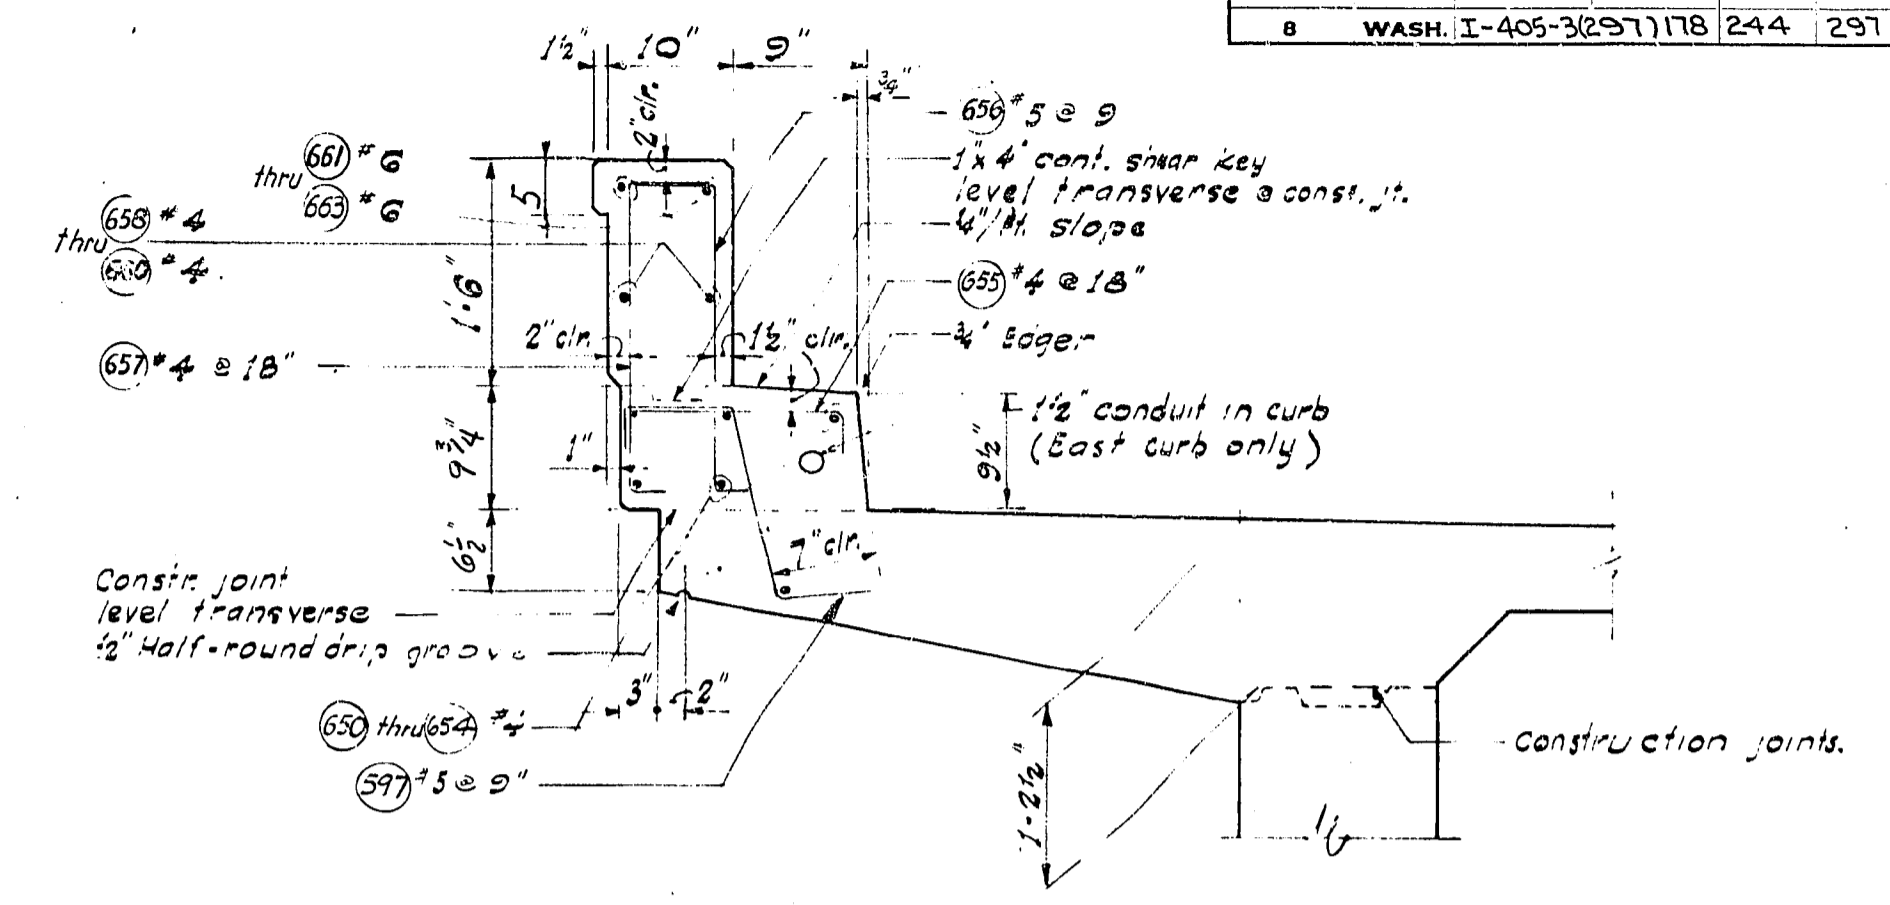 8 WASH. I-405-3(297)178 244 297
1½" 10" 9"
¾"
2" clr.
656 #5 @ 9
661 #6
thru
663 #6
1"x 4" cont. shear key
level transverse @ const. jt.
¼"/ft. slope
5
658 #4
thru
660 #4
1'-6"
655 #4 @ 18"
2" clr. 1½" clr.
¾" Edger
657 #4 @ 18"
9¾"
1"
9½"
1½" conduit in curb
(East curb only)
6½"
7" clr.
Constr. joint
level transverse
½" Half-round drip groove
3" 2"
650 thru 654 #4
597 #5 @ 9"
1'-2½"
construction joints.